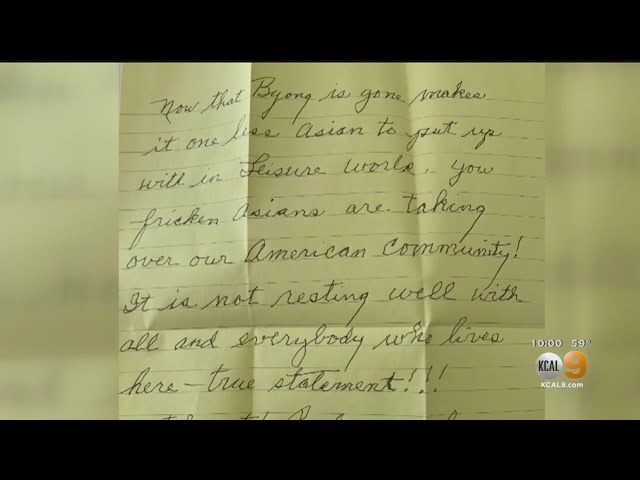 Now that Byong is gone makes
it one less Asian to put up
with in Leisure World. You
fricken Asians are taking
over our American Community!
It is not resting well with
all and everybody who lives
here - true statement!!!
10:00 59°
KCAL 9
KCAL9.com